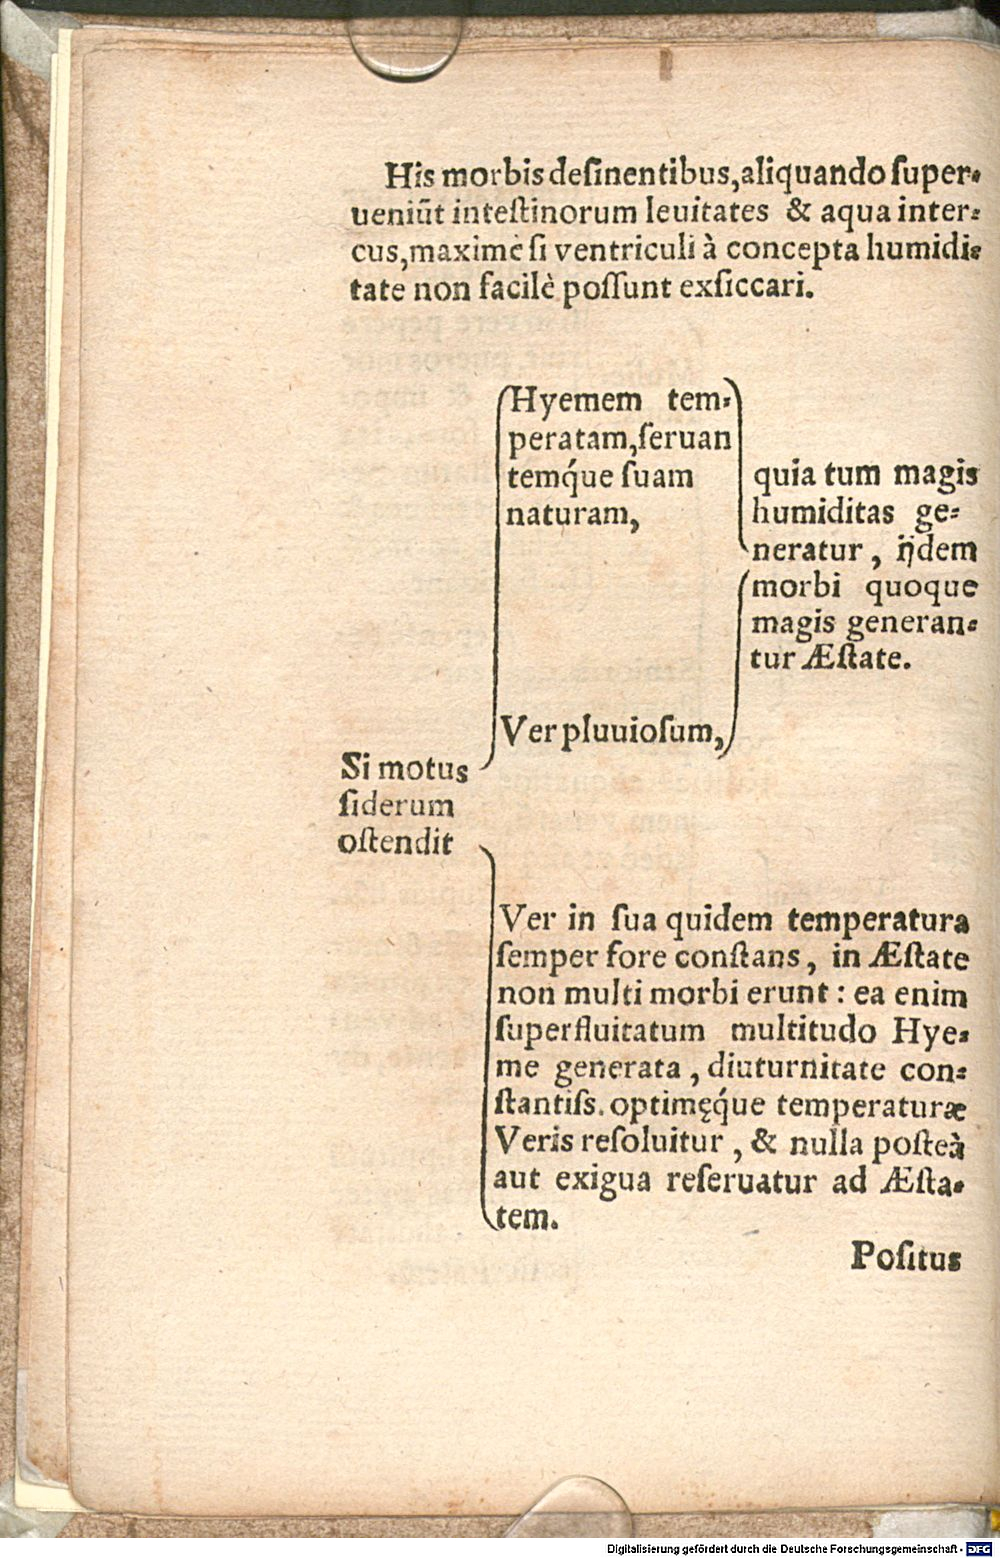 His morbis deſinentibus,aliquando ſuper-
ueniūt inteſtinorum leuitates & aqua inter-
cus,maximè ſi ventriculi à concepta humidi-
tate non facilè poſſunt exſiccari.
Si motus
ſiderum
oſtendit
Hyemem tem-
peratam,ſeruan
temq́ue ſuam
naturam,
Ver pluuioſum,
quia tum magis
humiditas ge-
neratur , ijdem
morbi quoque
magis generan-
tur Æſtate.
Ver in ſua quidem temperatura
ſemper fore conſtans, in Æſtate
non multi morbi erunt : ea enim
ſuperfluitatum multitudo Hye-
me generata , diuturnitate con-
ſtantiſs. optimęq́ue temperaturæ
Veris reſoluitur , & nulla poſteà
aut exigua reſeruatur ad Æſta-
tem.
Poſitus
Digitalisierung gefördert durch die Deutsche Forschungsgemeinschaft - DFG